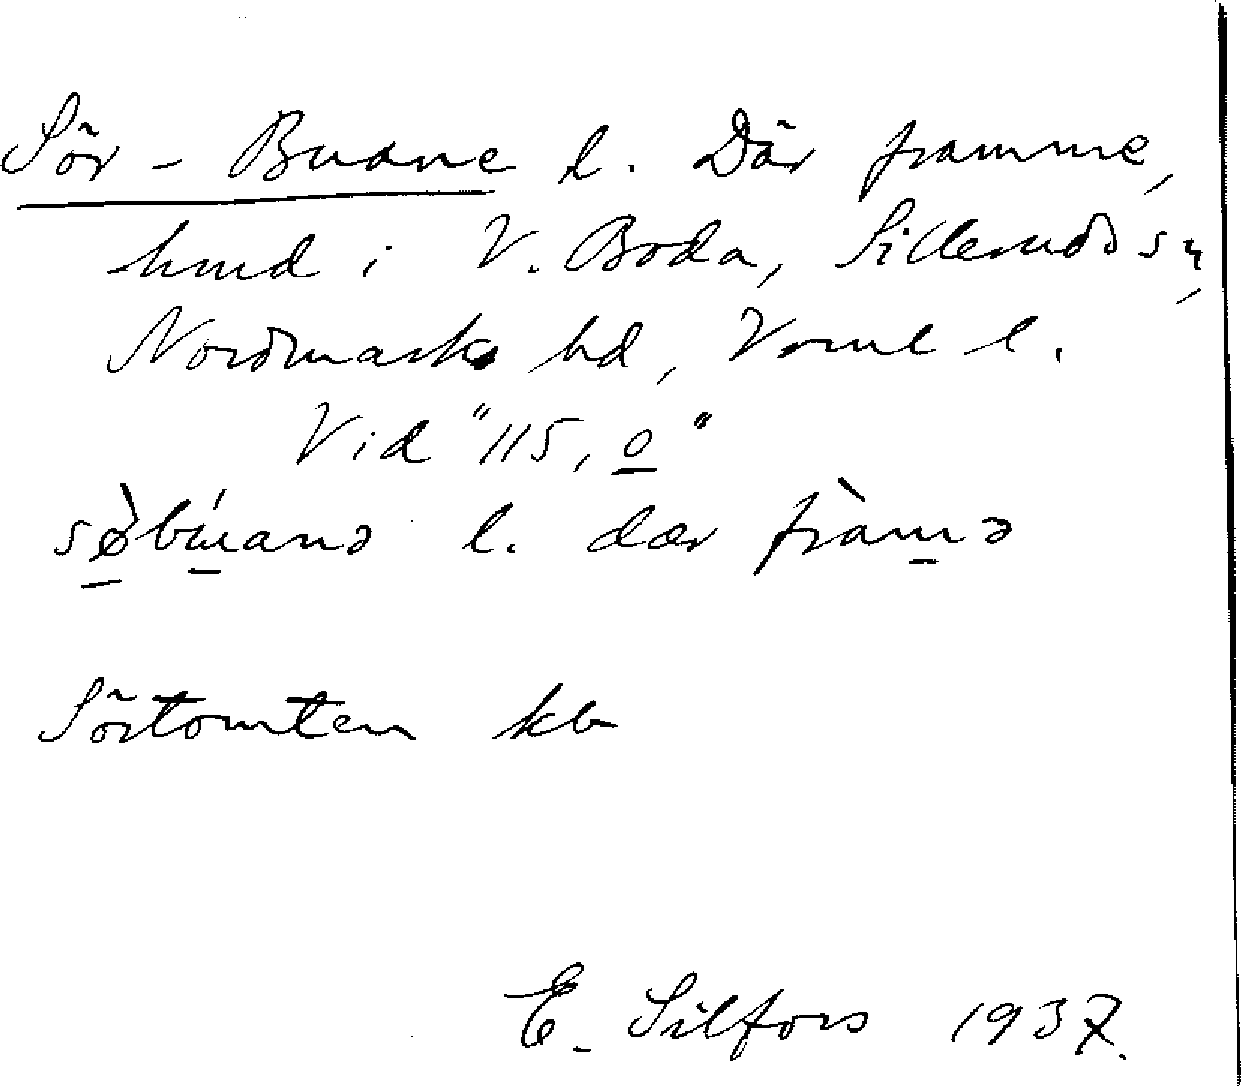 Sör-Buane l. Där framme,
hmd i V. Boda, Silleruds sn,
Nordmarks hd, Vrml l.
Vid "115,0"
sø̀bu̍anə l. dær fràmə
Sörtomten kb
E. Silfors 1937.